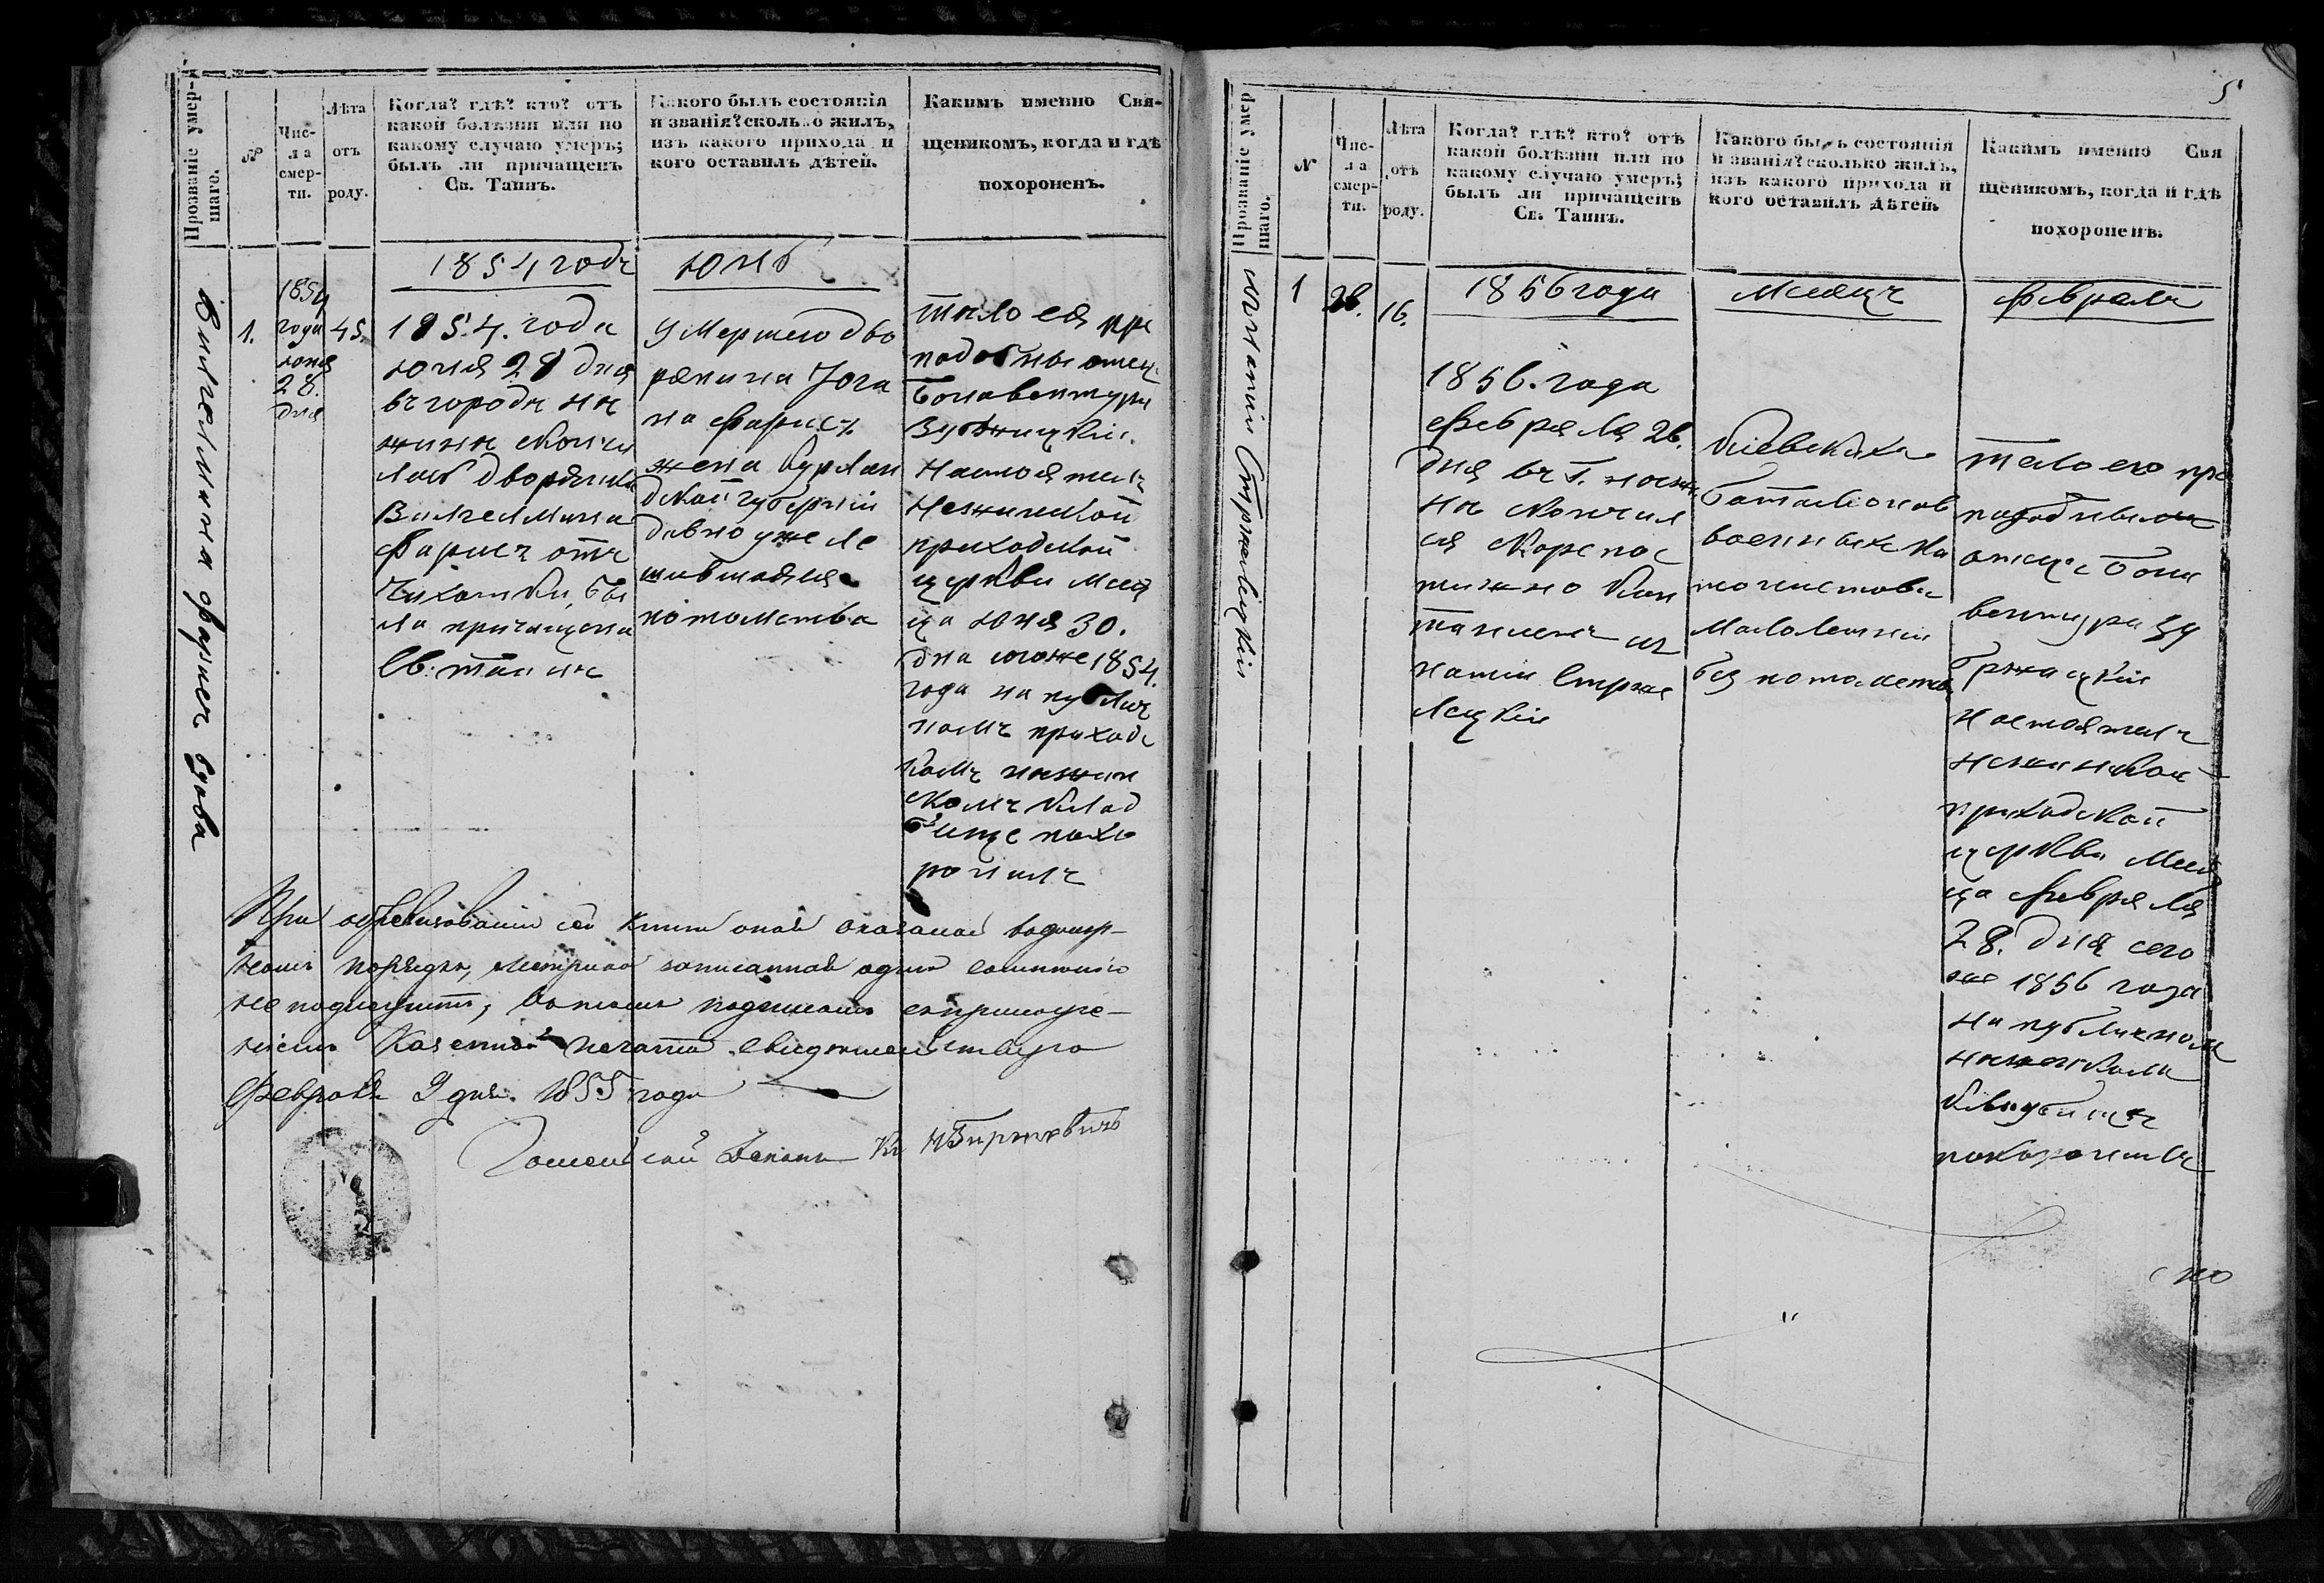 Прозваніе умер-
шаго.
№
Чис-
ла
смер-
ти.
Лѣта
отъ
роду.
Когда? гдѣ? кто? отъ
какой болѣзни или по
какому случаю умеръ;
былъ ли причащенъ
Св. Таинъ.
Какого былъ состоянія
и званія? сколько жилъ,
изъ какого прихода и
кого оставилъ дѣтей.
Какимъ именно Свя-
щеникомъ, когда и гдѣ
похороненъ.
1854 годъ
Юнь
Вильгельмина Фариссъ вдова
1.
1854
года
юня
28.
дня
45.
1854. года
юня 28 дня
въ городѣ нѣ
жинѣ скончa
лась дворянка
Вильгельмина
Фариссъ отъ
чихотки, бы
ла причащена
Св. таинъ
умершего дво
рянина Іога
на Фариссъ
жена Курлян
дской губерніи
давно уже ле
шившаяся
потомства
тѣло ея пре
подобный отецъ
Бонавентура
настоятель
нежинской
приходской
церкви меся
ца юня 30.
дня тогоже 1854.
года на публич
номъ приходс
комъ нежин
скомъ клад
бище похо
ронилъ
При обревизованіи сей книги оная оказалась
порядкѣ, метрика записанная одна
не подлежитъ, въ чемъ подписомъ съ приложе-
ніемъ Казенной печати свидѣтельствую
Февраля 9 дня 1855 года
Деканъ Кс.
5
Прозваніе умер
шаго.
№
Чис-
ла
смер-
ти.
Лѣта
отъ
роду.
Когда? гдѣ? кто? отъ
какой болѣзни или по
какому случаю умеръ;
былъ ли причащенъ
Св. Таинъ.
Какого былъ состоянія
и званія? сколько жилъ,
изъ какого прихода и
кого оставилъ дѣтей.
Какимъ именно Свя
щеникомъ, когда и гдѣ
похороненъ.
1856 года
месяцъ
февраль
Игнатій Стржалецкій
1
26.
16.
1856. года
февраля 26.
дня въ г. нежи
нѣ скончал
ся скорепос
тижно кан
танистъ иг
натій Стржа
лецкій
Кіевскихъ
баталіоновъ
военныхъ ка
тонистовъ
малолетній
без потомства
тело его пре
подобный
отецъ Бона
вентура Зу
бржицкій
настоятель
нежинской
приходской
церкви меся
ца февраля
28. дня сего
же 1856 года
на публичном
неженском
кладбищъ
похоронилъ